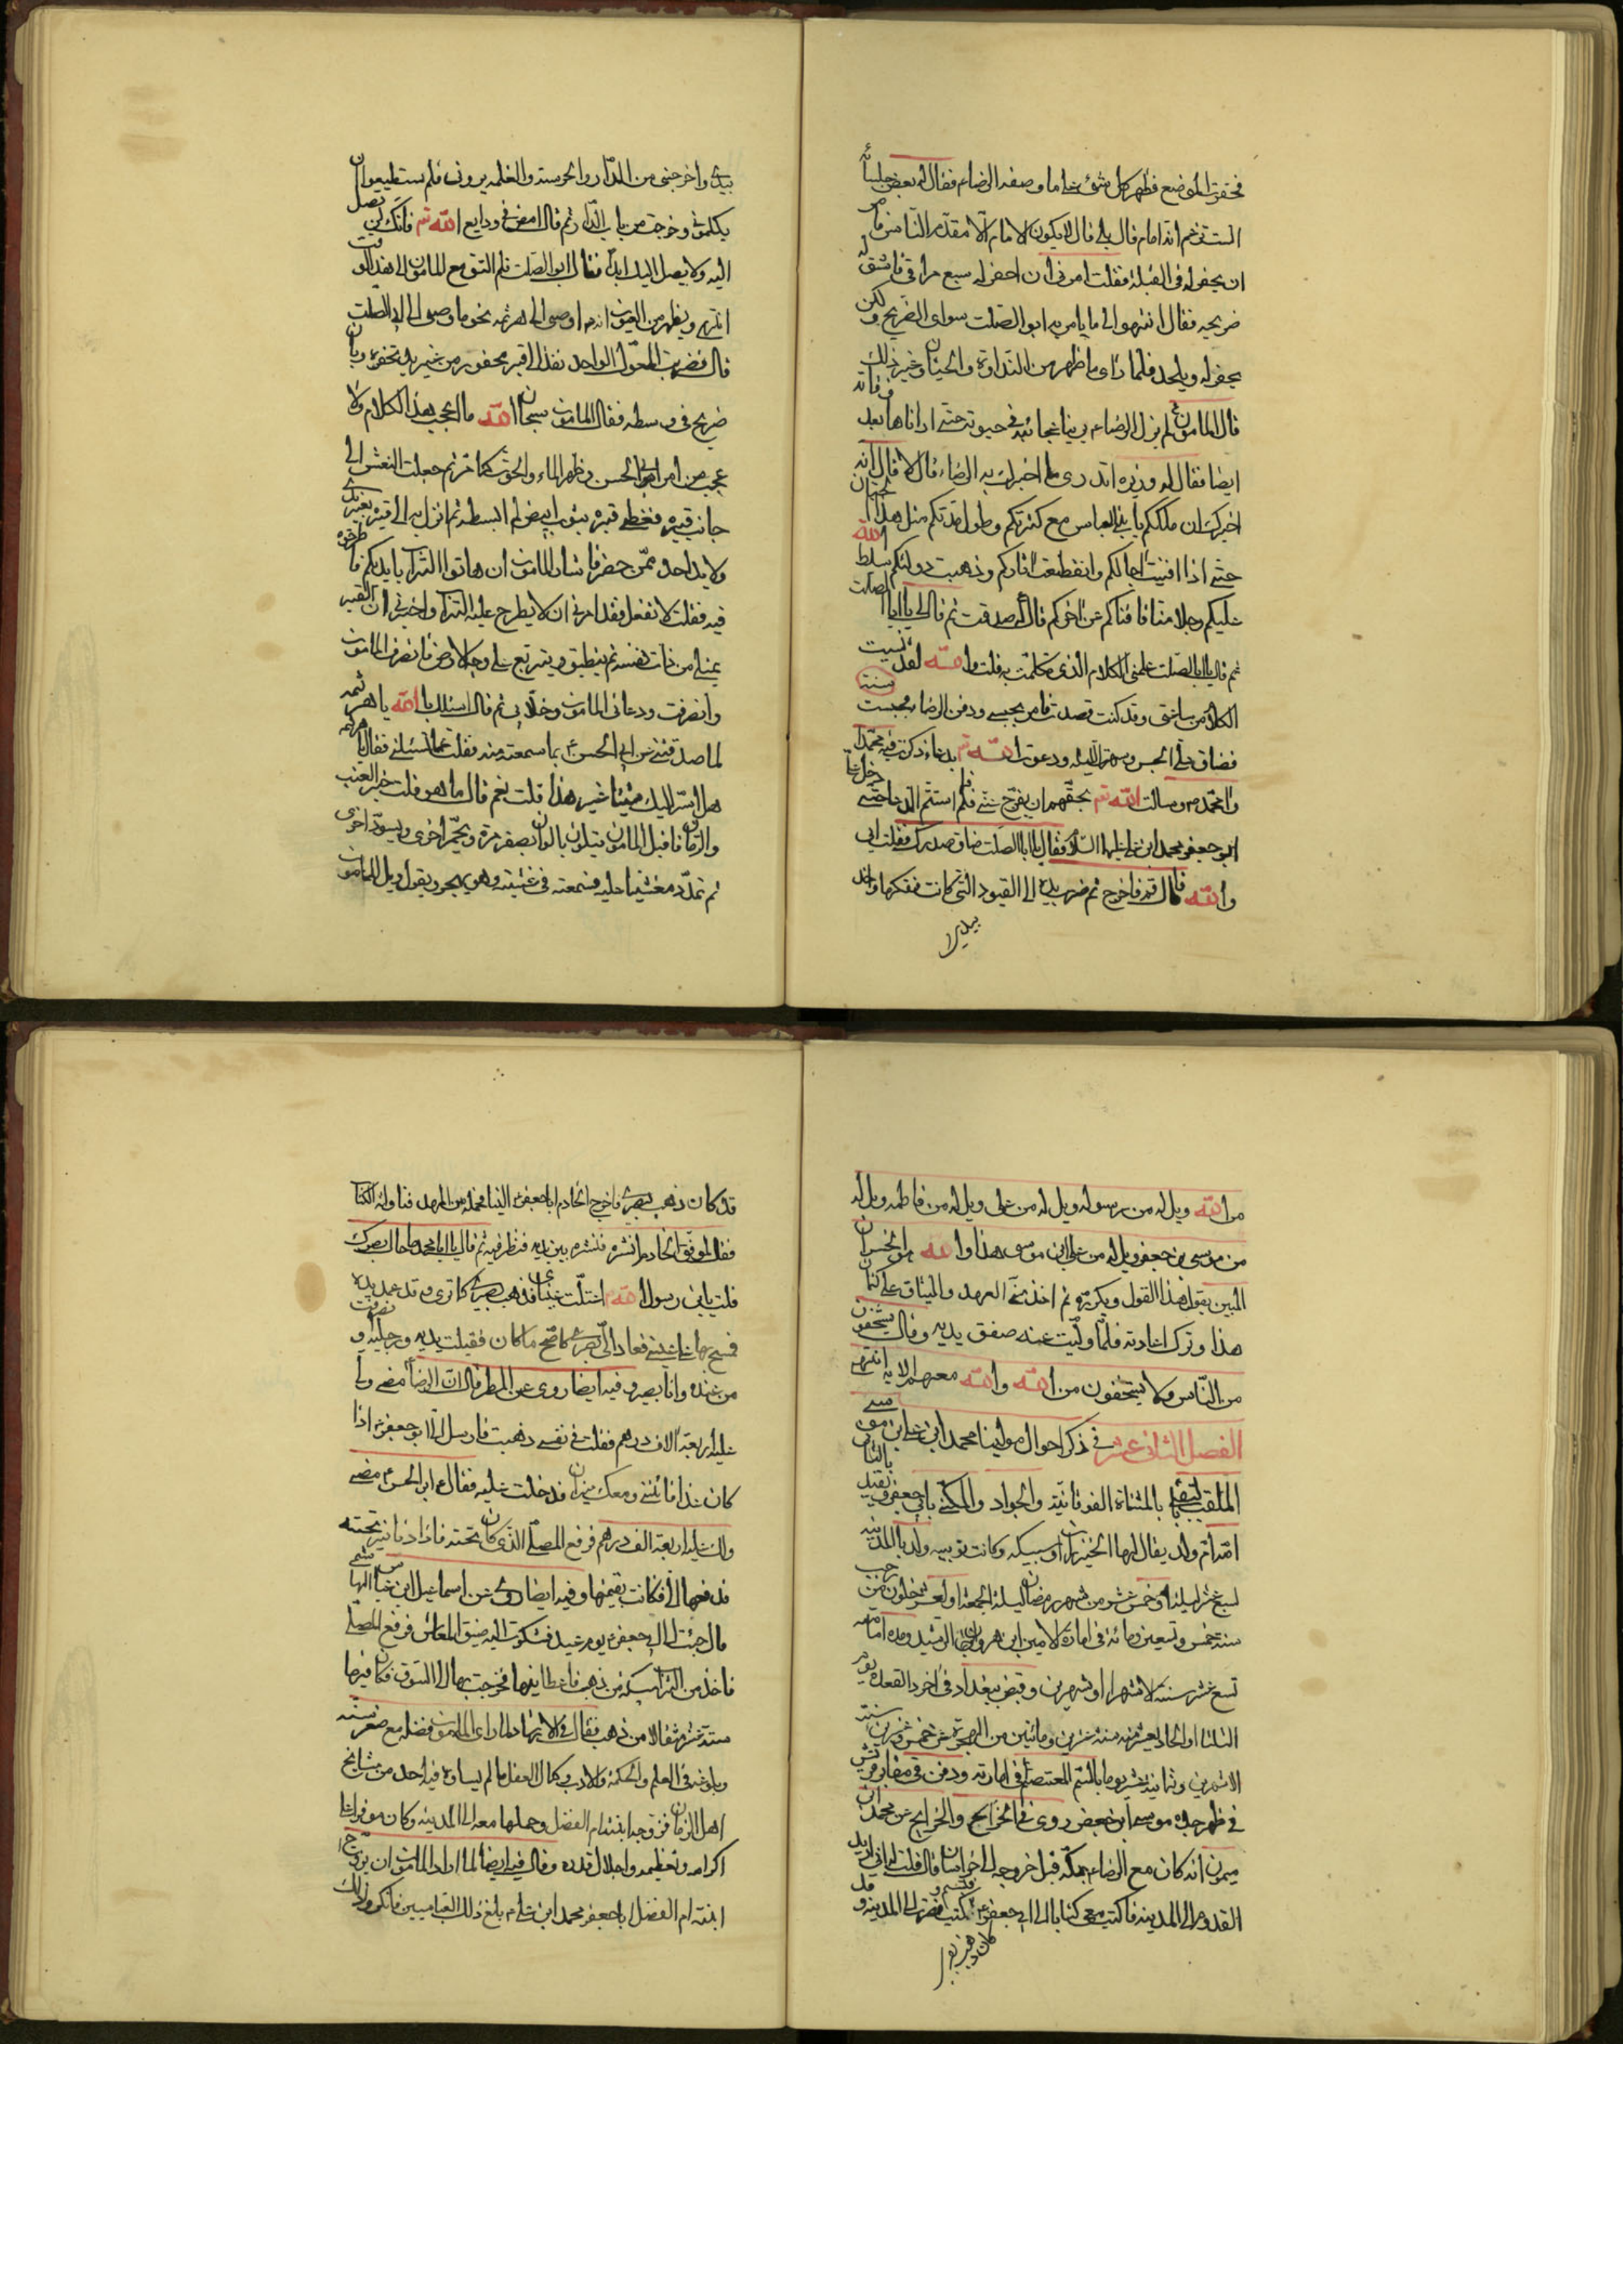 فحفرت الموضع فظهر كل شئ على ما وصفه الرضاء فقال له بعض جلسائه
الست تزعم انه امام قال بلى قال لا يكون الامام الا مقدم الناس فامر
ان يحفر له في القبلة فقلت امرني ان احفر له سبع مراقي فاشق له
ضريحه فقال انتهوا الى ما يامر به ابو الصلت سوى الضريح ولكن
يحفر له ويلحد فلما راى ما ظهر من النداوة والحيتان وغير ذلك
قال المامون لم يزل الرضاء يرينا عجائبه في حيوته حتى اراناها بعد وفاته
ايضا فقال له وزيره اتدرى ما اخبرك به الرضاء قال لا قال انه
اخبرك ان ملككم يا بني العباس مع كثرتكم وطول مدتكم مثل هذه الحيتان
حتى اذا افنيت اجالكم وانقطعت اثاركم وذهبت دولتكم سلط الله
عليكم رجلا منا فافناكم عن اخركم قال له صدقت ثم قال لي يا ابا الصلت
ثم قال يا ابا الصلت علمني الكلام الذي تكلمت به قلت والله لقد نسيت
الكلام من ساعتي وقد كنت صدقت فامر بحبسي ودفن الرضاء فحبست سنة
فضاق علي الحبس وسهرت الليلة ودعوت الله تع بدعاء ذكرت فيه محمدا
وال محمد وسالت الله تع بحقهم ان يفرج عني فلم استتم الدعا حتى دخل علي
ابو جعفر محمد ابن علي عليهما السلام فقال يا ابا الصلت ضاق صدرك فقلت اي
والله قال قم فاخرج ثم ضرب يده الى القيود التي كانت ففكها واخذ
بيدي
بيدي واخرجني من الدار والحرسة والغلمة يروني فلم يستطيعوا ان
يكلموني وخرجت من باب الدار ثم قال امض في ودايع الله تع فانك لن تصل
اليه ولا يصل اليك ابدا فقال ابو الصلت فلم التق مع المامون الى هذا الوقت
انتهى ويظهر من العيون انه اوصى الى هرثمة نحو ما اوصى الى ابي الصلت
قال فضربت المعول الواحد نفذ الى قبر محفور من غير يد تحفره وبان
ضريح في وسطه فقال المامون سبحان الله ما اعجب هذا الكلام ولا
عجب من امر ابي الحسن فظهر الماء والحوت كما مر ثم جعلت النعش الى
جانب قبره فغطى قبره بثوب ابيض لم ابسطه ثم انزل به الى قبره بغير يدي
ولا يد احد ممن حضر فاشار المامون ان هاتوا التراب بايديكم فاطرحوه
فيه فقلت لا تفعل فقد امرني ان لا يطرح عليه التراب واخبرني ان القبر
يمتلى من ذات نفسه ثم ينطبق ويتربع على وجه الارض فانصرف المامون
وانصرفت ودعاني المامون وخلا بي ثم قال اسئلك بالله يا هرثمه
لما صدقتني عن ابي الحسن بما سمعته منه فقلت عما تسئلني فقال يا هرثمه
هل اسر اليك شيئا غير هذا قلت نعم قال ما هو قلت خبر العنب
والرمان فاقبل المامون يتلون بالوان يصفر مرة ويحمر اخرى ويسود اخرى
ثم تمدد مغشيا عليه فسمعته في غشيته وهو يهجر ويقول ويل للمامون
من الله ويل له من رسوله ويل له من علي ويل له من فاطمه ويل له
من موسى بن جعفر ويل له من علي ابن موسى هذا والله هو الخسران
المبين يقول هذا القول ويكرره ثم اخذ مني العهد والميثاق على كتمان
هذا وترك اعادته فلما وليت عنه صفق يديه وقال يستخفون
من الناس ولا يستخفون من الله والله معهم الاية انتهى
الفصل الثاني عشر في ذكر احوال مولينا محمد ابن علي ابن موسى
الملقب بالتقي بالمثناة الفوقانية والجواد والمكنى بابي جعفر الثاني
امه ام ولد يقال لها الخيزران او سبيكه وكانت نوبيه ولد بالمدينه
لسبع عشر ليلة او خمس عشر من شهر رمضان ليلة الجمعة او لعشر خلون من رجب
سنة خمس وتسعين ومائة في امارة الامين ابن هرون الرشيد ومدة امامته
تسع عشر سنة الا شهرا او شهرين وقبض ببغداد في اخر ذي القعدة يوم
الثلثا او الحادي عشر منه سنة عشرين ومائتين من الهجرة عن خمس وعشرين سنة
الا شهرين وثمانية عشر يوما بالسم المعتصم في امارته ودفن في مقابر قريش
في ظهر جده موسى ابن جعفر روى في الخرايج والجرايح عن محمد ابن
ميمون انه كان مع الرضاء بمكه قبل خروجه الى خراسان قال قلت له اني اريد
القدوم الى المدينه فاكتب معي كتابا الى ابي جعفر فتبسم وكتب فصرت الى المدينه و قد
كان ذهب بصري
قد كان ذهب بصري فاخرج الخادم ابا جعفر الينا فحمله من المهد فناولته الكتاب
فقال لموفق الخادم انشره فنشره بين يديه فنظر فيه ثم قال يا محمد ما حال بصرك
قلت يا ابن رسول الله اعتلت عيناي فذهب بصري كما ترى قال فمد يده
فمسح بها على عيني فعاد الي بصري كاصح ما كان فقبلت يديه ورجليه وانصرفت
من عنده وانا بصير وفيه ايضا روى عن المطرفي قال ان الرضا مضى ولي
عليه اربعة الاف درهم فقلت في نفسي ذهبت فارسل الي ابو جعفر اذا
كان غدا فائتني ومعك ميزان فدخلت عليه فقال لي ابو الحسن مضى
ولك عليه اربعة الف درهم فرفع المصلى الذي كان تحته فاذا دنانير تحته
فدفعها الي فكانت بقيمتها وفيه ايضا روى عن اسماعيل ابن عباس الهاشمي
قال جئت الى ابي جعفر يوم عيد فشكوت اليه ضيق المعاش فرفع المصلى
فاخذ من التراب سبيكه من ذهب فاعطانيها فخرجت بها الى السوق فكان فيها
ستة عشر مثقالا من ذهب فقال في الارشاد لما راى المامون فضله مع صغر سنه
وبلوغه في العلم والحكمة والادب وكمال العقل ما لم يساوه فيه احد من مشايخ
اهل الزمان فزوجه ابنته ام الفضل وحملها معه الى المدينه وكان موفرا على
اكرامه وتعظيمه واجلال قدره وقال فيه ايضا لما اراد المامون ان يزوج
ابنته ام الفضل ابا جعفر محمد ابن علي بلغ ذلك العباسيين فانكروا ذلك